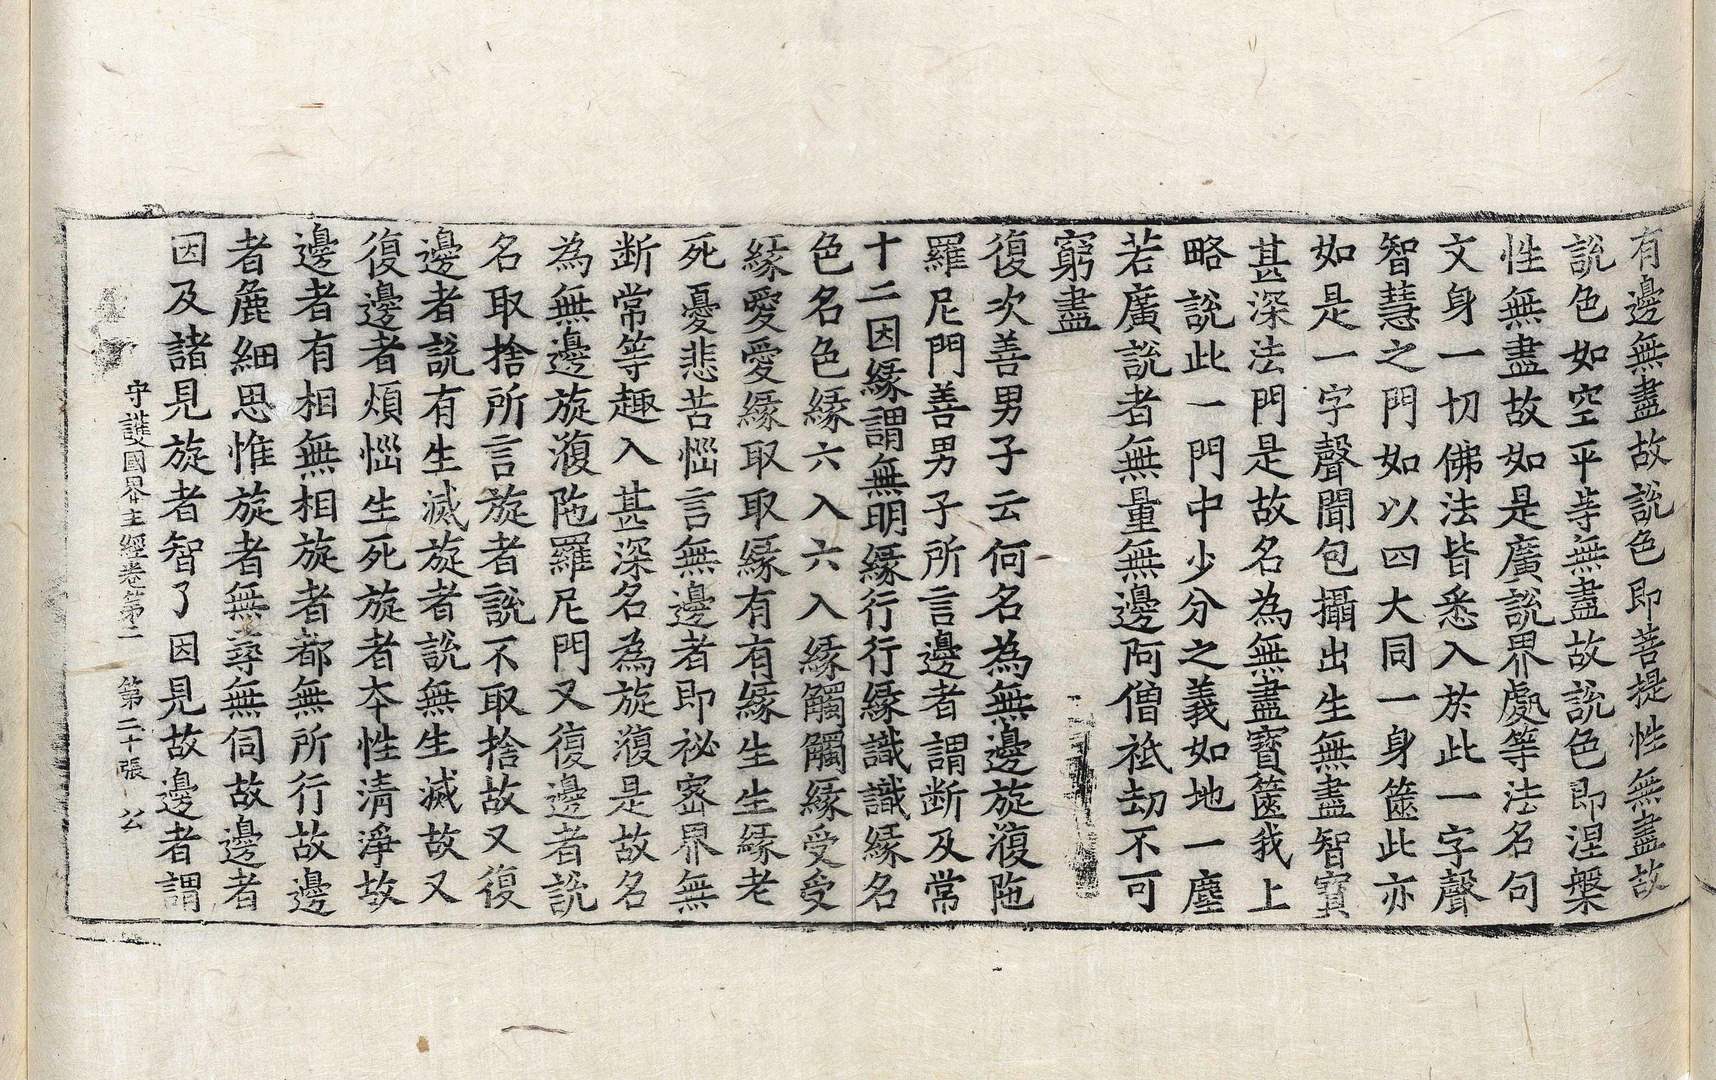 有邊無盡故說色即菩提性無盡故
說色如空平等無盡故說色即涅槃
性無盡故如是廣說界處等法名句
文身一切佛法皆悉入於此一字聲
智慧之門如以四大同一身篋此亦
如是一字聲聞包攝出生無盡智寶
甚深法門是故名為無盡寶篋我上
略說此一門中少分之義如地一塵
若廣說者無量無邊阿僧祇劫不可
窮盡
復次善男子云何名為無邊旋澓陁
羅尼門善男子所言邊者謂斷及常
十二因緣謂無明緣行行緣識識緣名
色名色緣六入六入緣觸觸緣受受
緣愛愛緣取取緣有有緣生生緣老
死憂悲苦惱言無邊者即祕密界無
斷常等趣入甚深名為旋澓是故名
為無邊旋澓陁羅尼門又復邊者說
名取捨所言旋者說不取捨故又復
邊者說有生滅旋者說無生滅故又
復邊者煩惱生死旋者本性清淨故
邊者有相無相旋者都無所行故邊
者麁細思惟旋者無尋無伺故邊者
因及諸見旋者智了因見故邊者謂
守護國界主經卷第二 第二十張 公